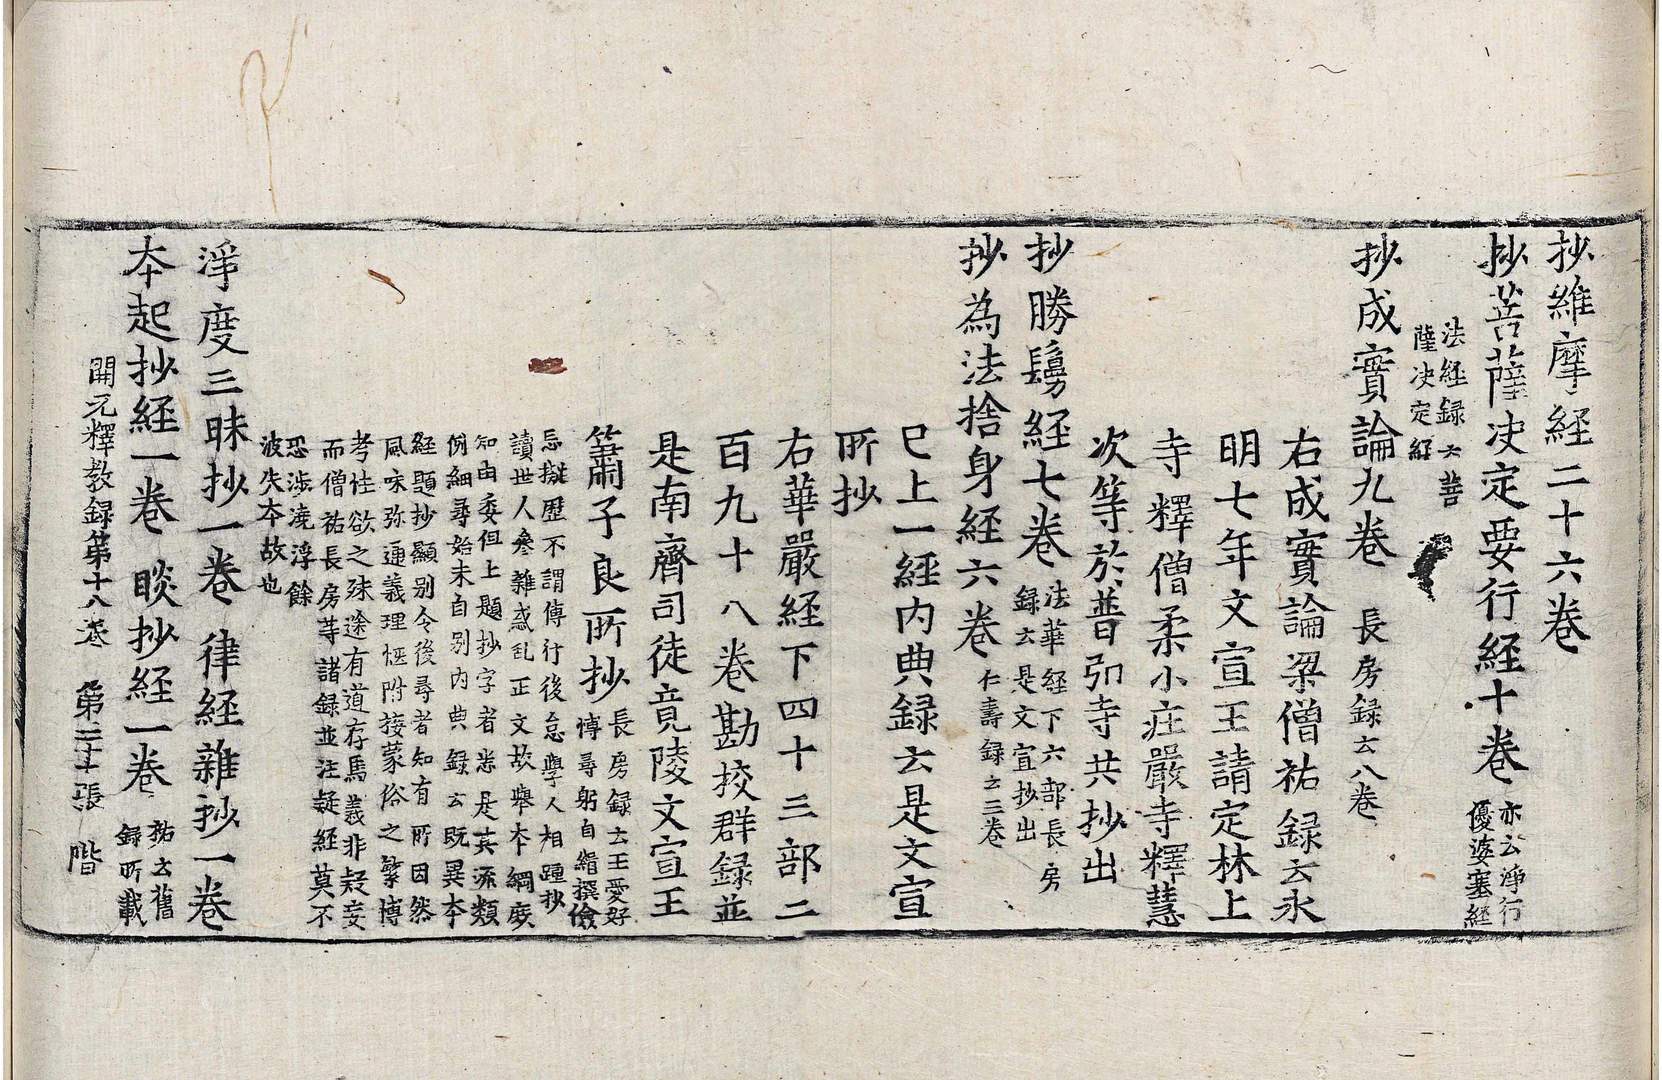 抄維摩経二十六巻
抄菩薩决定要行経十巻 亦云淨行
優婆塞経
法経録云菩
薩决定経
抄成實論九巻 長房録云八巻
右成實論梁僧祐録云永
明七年文宣王請定林上
寺釋僧柔小庄嚴寺釋慧
次等於普弘寺共抄出
抄勝鬘経七巻 法華経下六部長房
録云是文宣抄出
抄為法捨身経六巻 仁壽録云三巻
巳上一経内典録云是文宣
所抄
右華嚴経下四十三部二
百九十八巻勘挍群録並
是南齊司徒竟陵文宣王
蕭子良所抄 長房録云王愛好
博尋躬自緝撰儉
忌擬歷不謂傳行後怠學人相踵抄
讀世人叅雜惑乱正文故舉本綱庻
知由委但上題抄字者悉是其流類
例細尋始末自别内典録云既異本
経題抄顯别令後尋者知有所因然
風味弥逼義理恆附接蒙俗之繁博
考性欲之殊途有道存焉義非疑妄
而僧祐長房等諸録並注疑経莫不
恐渉澆浮餘
波失本故也
淨度三昧抄一巻 律経雜抄一巻
本起抄経一巻 睒抄経一巻 祐云舊
録所載
開元釋教録第十八巻 第二十張 階